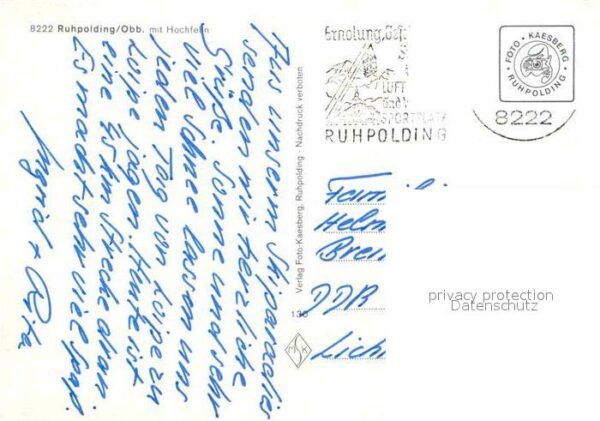 8222 Ruhpolding/Obb. mit Hochfelln
Aus unserm Skiparadies
senden wir herzliche
Grüße. Sonne und sehr
viel Schnee lassen uns
jeden Tag von Loipe zu
Loipe jagen. Heute ist
eine 15 km Strecke dran
Es macht sehr viel Spaß.
Ingrid +
Verlag Foto-Kaesberg, Ruhpolding - Nachdruck verboten
130
MSK
Erholung,
LUFT
UND
SPORTPLATZ
RUHPOLDING
FOTO · KAESBERG
RUHPOLDING
8222
Famili
Helm
Brei
DDR
Lich
privacy protection
Datenschutz